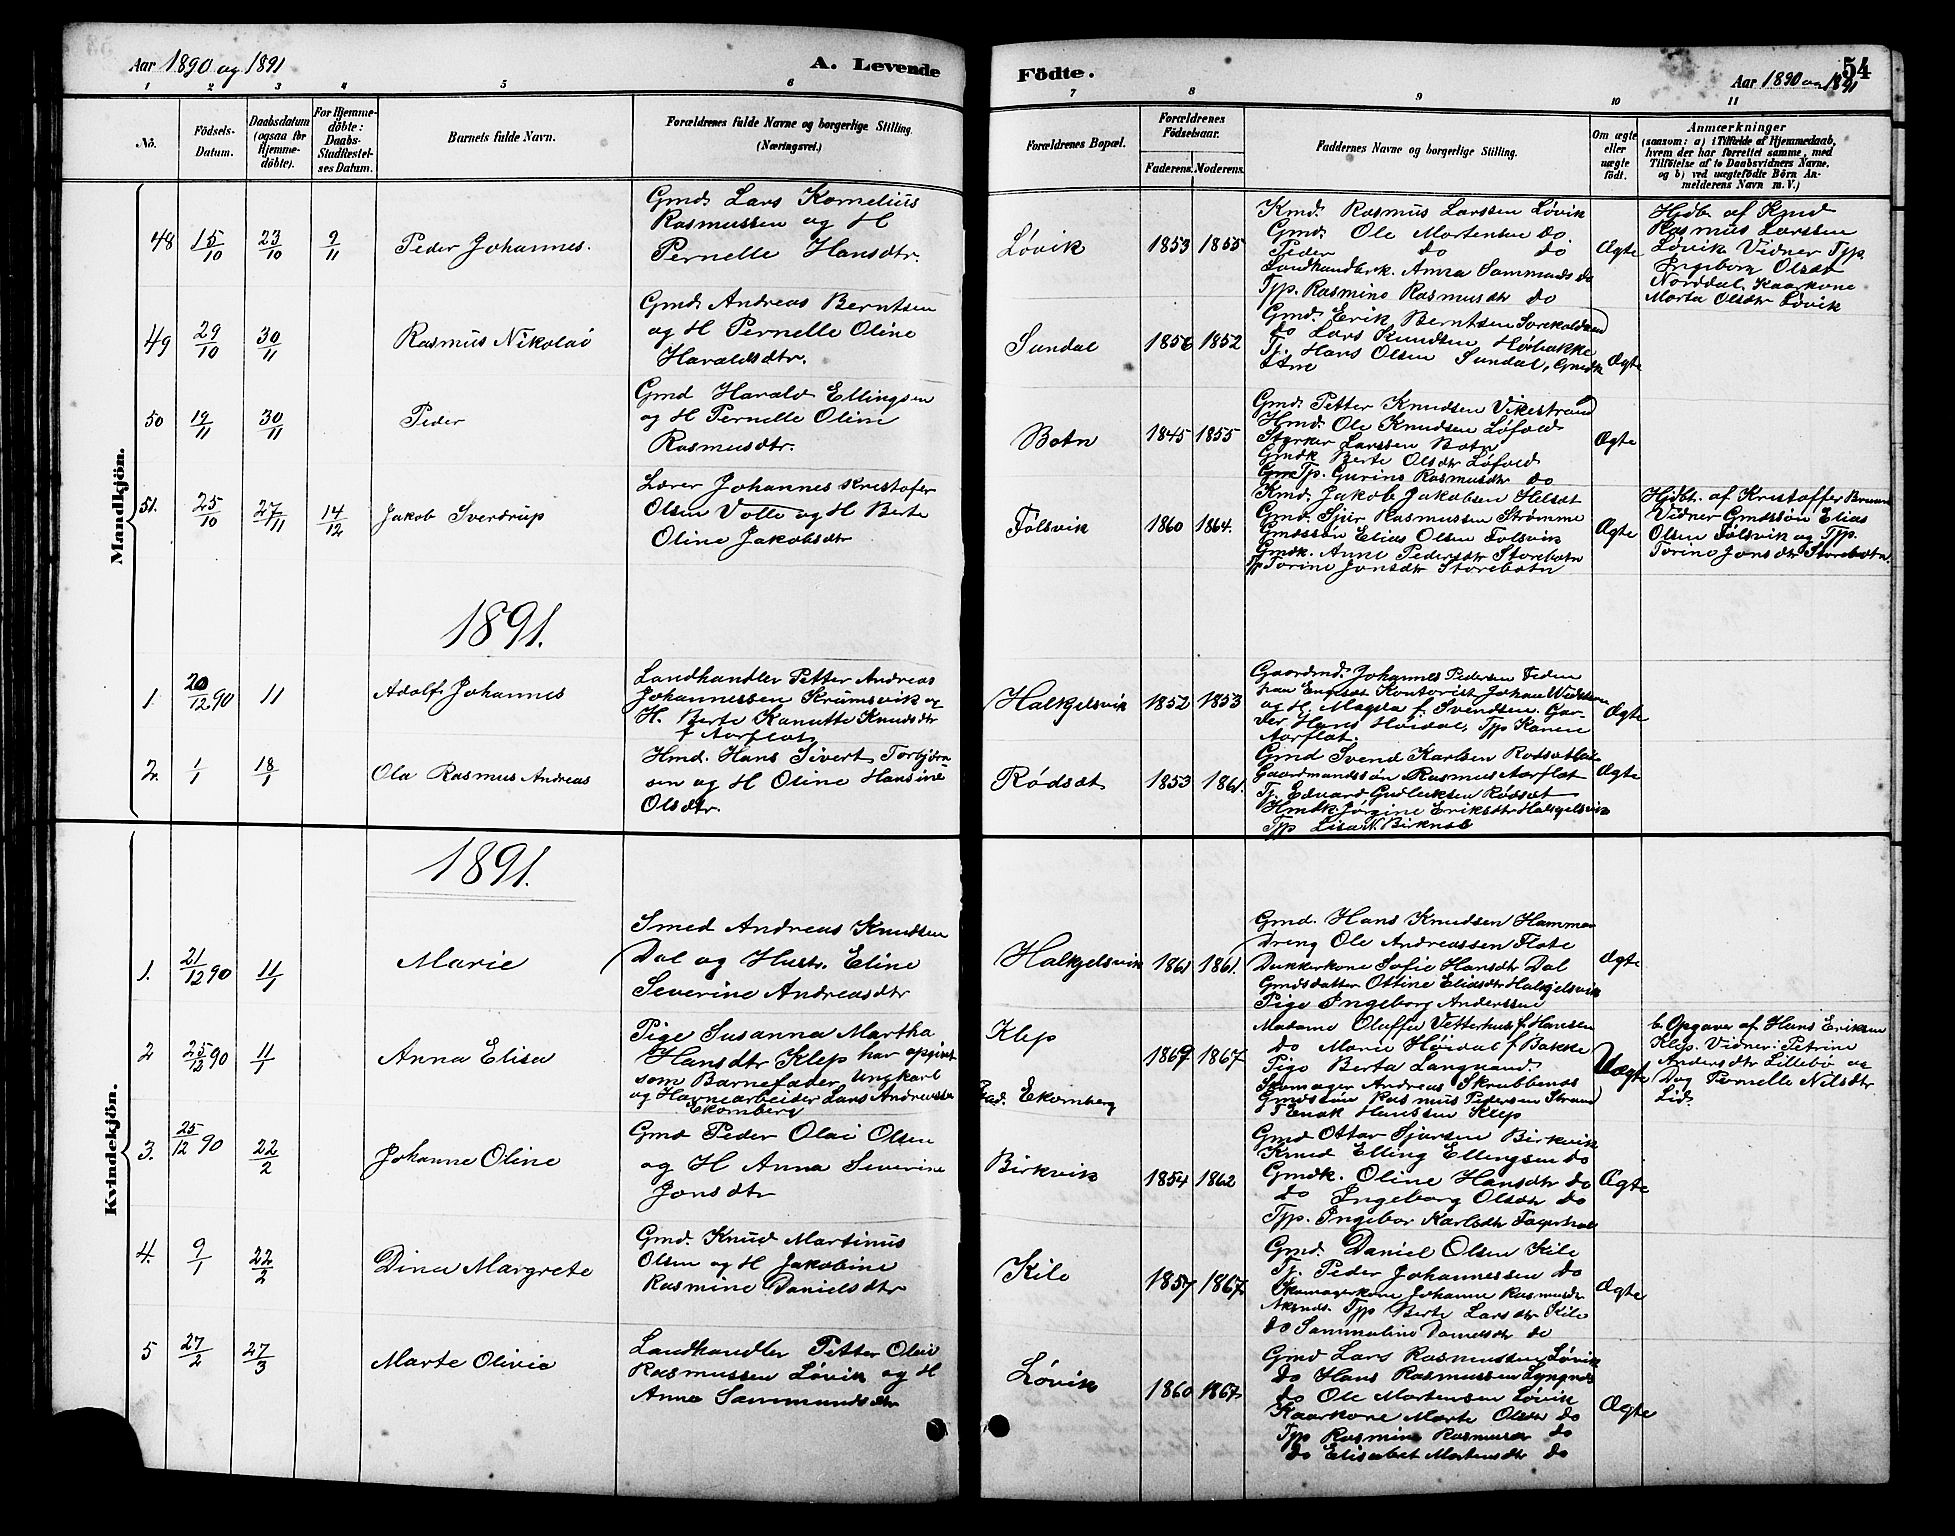 Aar 1890 og 1891
A. Levende
Födte.
Aar 1890 og 1891
54
1 2 3 4 5 6 7 8 9 10 11
No.
Födsels-
Datum.
Daabsdatum
(ogsaa for
Hjemme-
döbte).
For Hjemme-
döbte:
Daabs-
Stadfæstel-
ses Datum.
Barnets fulde Navn.
Forældrenes fulde Navne og borgerlige Stilling.
(Næringsvei.)
Forældrenes Bopæl.
Forældrenes
Födselsaar.
Faderens. Moderens.
Faddernes Navne og borgerlige Stilling.
Om ægte
eller
uægte
födt.
Anmærkninger
(saasom: a) i Tilfælde af Hjemmedaab,
hvem der har forrettet samme, med
Tilföielse af to Daabsvidners Navne,
og b) ved uægtefödte Börn An-
melderens Navn m. V.)
Mandkjön.
48 15/10 23/10 9/11 Peder Johannes.
Gmd. Lars Kornelius
Rasmussen og H
Pernelle Hansdtr.
Løvik 1853 1855
Kmd. Rasmus Larssen Løvik
Gmd. Ole Mortensen do.
Peder do do
Landhandlerk. Anna Sammunds do
Typ. Rasmine Rasmusdtr do
Ægte
Hjdb. af Kmd
Rasmus Larssen
Løvik Vidner Typ.
Ingeborg Olsdtr
Norddal, Kaarkone
Marta Olsdtr Løvik
49 29/10 30/11 Rasmus Nikolai
Gmd. Andreas Berntsen
og H Pernelle Oline
Haraldsdtr.
Sundal 1856 1852
Gmd. Erik Berntsen
do Lars Knudsen Høibakke
Tj. Hans Olsen Sundal, Gmdk
Ane
Ægte
50 19/11 30/11 Peder
Gmd Harald Ellingsen
og H Pernelle Oline
Rasmusdtr.
Botn 1845 1855
Gmd. Petter Knudsen Vikestrand
Hmd. Ole Knudsen Løfold
Styrker Larssen Botn
Gmdk Berte Olsdtr Løfold
Typ. Gurine Rasmusdtr do
Ægte
51. 25/10 27/11 14/12 Jakob Sverdrup
Lærer Johannes Kristofer
Olsen Volle og H Berte
Oline Jakobsdtr
Folsvik 1860 1864.
Kmd. Jakob Jakobsen Helset
Gmd. Sjur Rasmussen Strømme
Gmdssøn Elias Olsen Folsvik
Gmdk. Anne Pedersdtr Storebotn
Typ Torine Jonsdtr Storebotn
Ægte
Hjdbt. af Kristoffer
Vidner Gmdssøn Elias
Olsen Folsvik og Typ.
Torine Jonsdtr Storebotn.
1891.
1. 20/12 90 11 Adolf Johannes
Landhandler Petter Andreas
Johannessen Krumsvik og
H. Berte Kanutte Knudsdtr
f Aarflot
Halkjelsvik 1852 1853
Gaardmd. Johannes Pedersen
paa Engeset Kontorist Johan
og H. Magda f. Svendsen. Gar-
ver Hans Høidal, Typ Karen
Aarflot.
Ægte
2. 1/1 18/1 Ole Rasmus Andreas
Hmd. Hans Sivert Torbjørn
sen og H Oline Hansine
Olsdtr.
Rødsæt 1853 1861.
Gmd Svend Karlsen
Gaardmandssøn Rasmus Aarflot
Tj. Edvard Gudleiksen Rødsæt
Hmdk Jørgine Eriksdtr Halkjelsvik
Typ Lisa N. Birknes
Ægte
Kvindekjön.
1891.
1. 21/12 90 11/1 Marie
Smed Andreas Knudsen
Dal og Hustr. Eline
Severine Andreasdtr
Halkjelsvik 1861 1861.
Gmd. Hans Knudsen Hammer
Dreng Ole Andreassen Flote
Dukkerkone Sofie Hansdtr Dal
Gmdsdatter Ottine Eliasdtr Halkjelsvik
Pige Ingeborg Anderssen
Ægte
2 25/12 90 11/1 Anna Elisa
Pige Susanna Martha
Hansdtr Klep har opgivet
som Barnefader Ungkarl
og Havnearbeider Lars Andreassen
Ekornberg
Klep
Fad. Ekornberg
1869 1867
Madame Oluffa Vetterhus f. Hansen
do Marie Høidal f Bakke
Pige Berta
Skomager Andreas
Gmdssøn Rasmus Pedersen Strand
Enok Hanssen Klep
Uægte
b. Opgave af Hans Eriksen
Klep. Vidner: Petrine
Andersdtr Lillebø og
Pernelle Nilsdtr
Lid.
3. 25/12 90 22/2 Johanne Oline
Gmd Peder Olai Olsen
og H Anna Severine
Jonsdtr
Birkvik 1854 1862
Gmd Ottar Sjursen Birkvik
Kmd Elling Ellingsen do
Gmdk. Oline Hansdtr do
do Ingeborg Olsdtr do
Typ. Ingebor Karlsdtr
Ægte
4. 9/1 22/2 Dina Margrete
Gmd. Knud Martinus
Olsen og H Jakobine
Rasmine Danielsdtr
Kile 1857 1867
Gmd. Daniel Olsen Kile
Tj. Peder Johannessen do
Skomagerkone Johanne Rasmusdtr
Typ Berte Larsdtr Kile
do Sammuline Danielsdtr do
Ægte
5 27/2 27/3 Marte Olivie
Landhandler Petter Olai
Rasmussen Løvik og H
Anna Sammundsdtr
Løvik 1860 1867
Gmd Lars Rasmussen Løvik
do Hans Rasmussen Lyngnes
do Ole Mortensen Løvik
Kaarkone Marte Olsdtr do
Typ Rasmine Rasmusdtr do
do Elisabet Mortensdtr do
Ægte